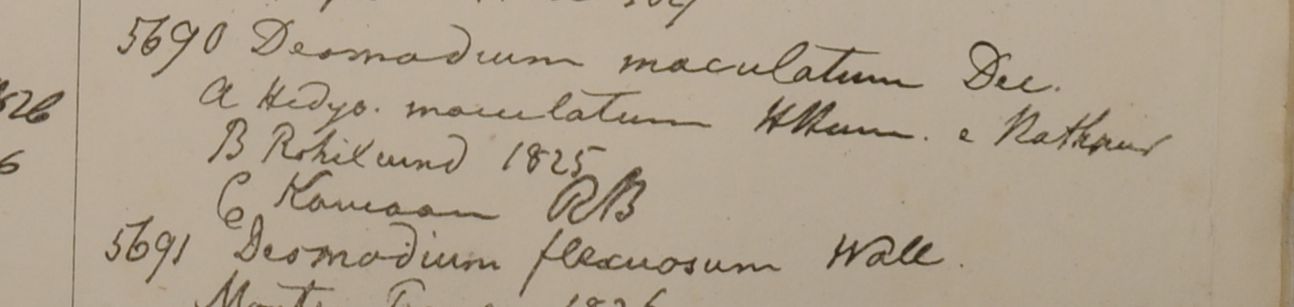 5690 Desmodium maculatum Dec.
A Hedys. maculatum HHam. e Nathpur
B Rohilcund 1825
C Kamaon RB
5691 Desmodium flexuosum Wall.